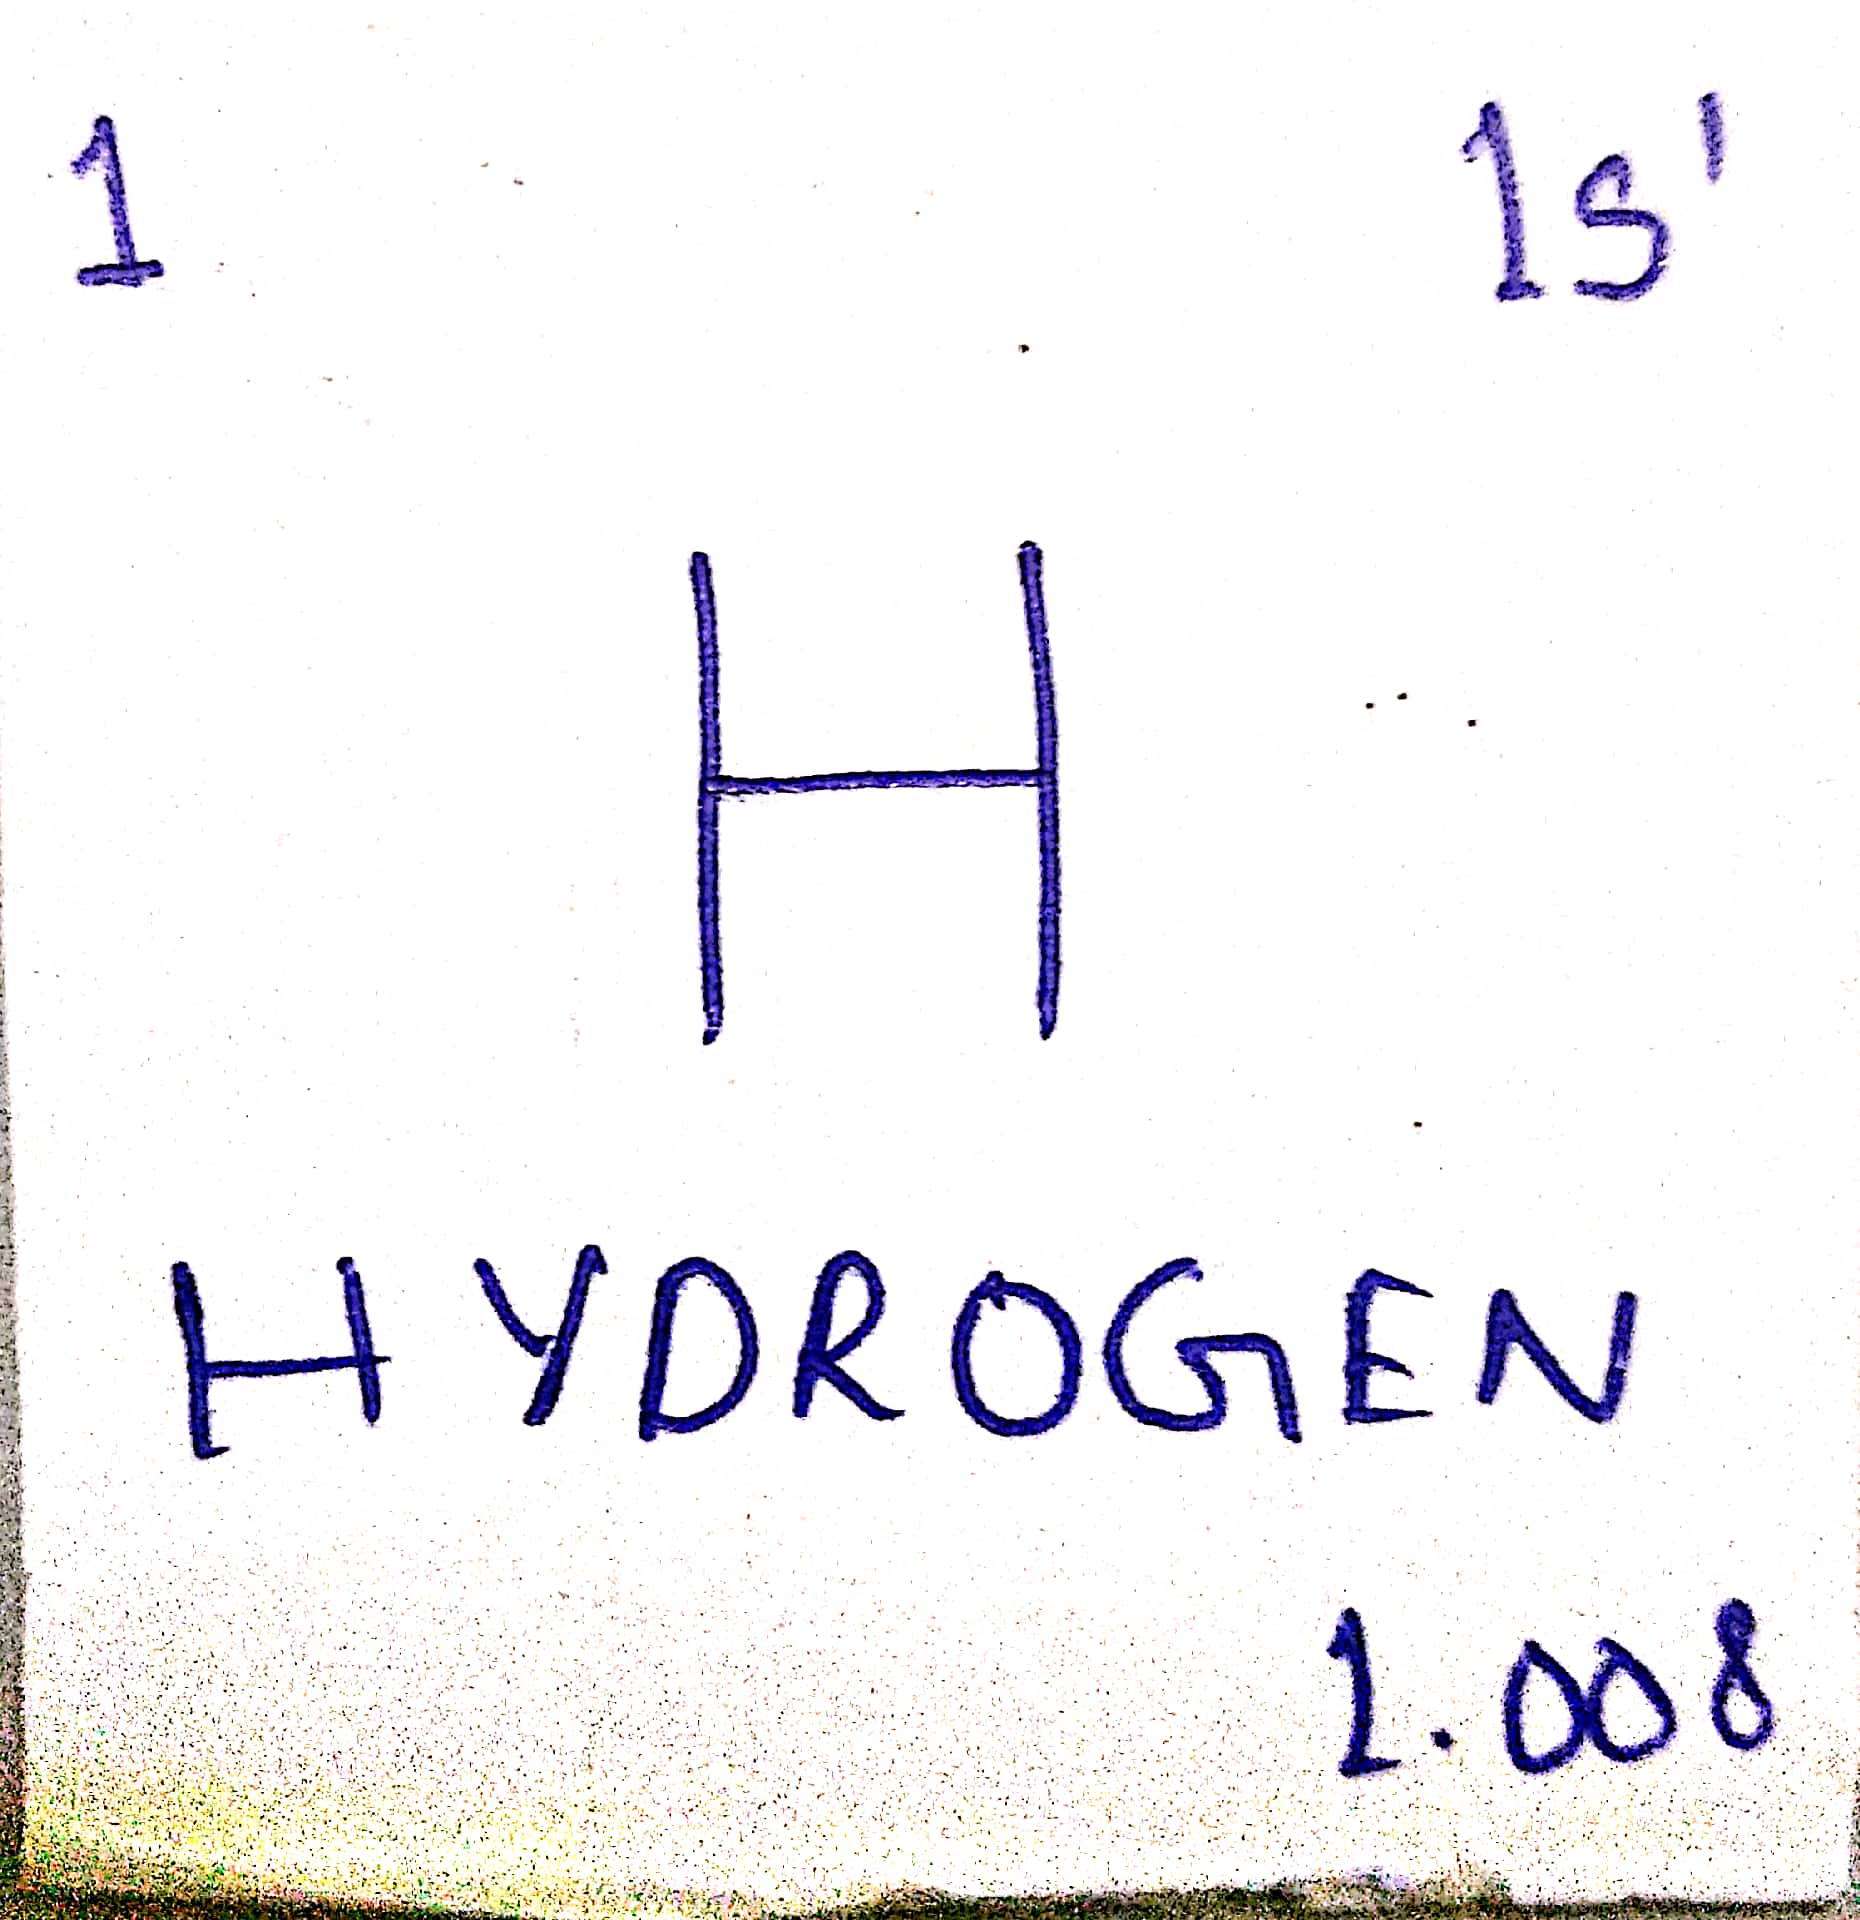 1 1s¹
H
HYDROGEN
1.008